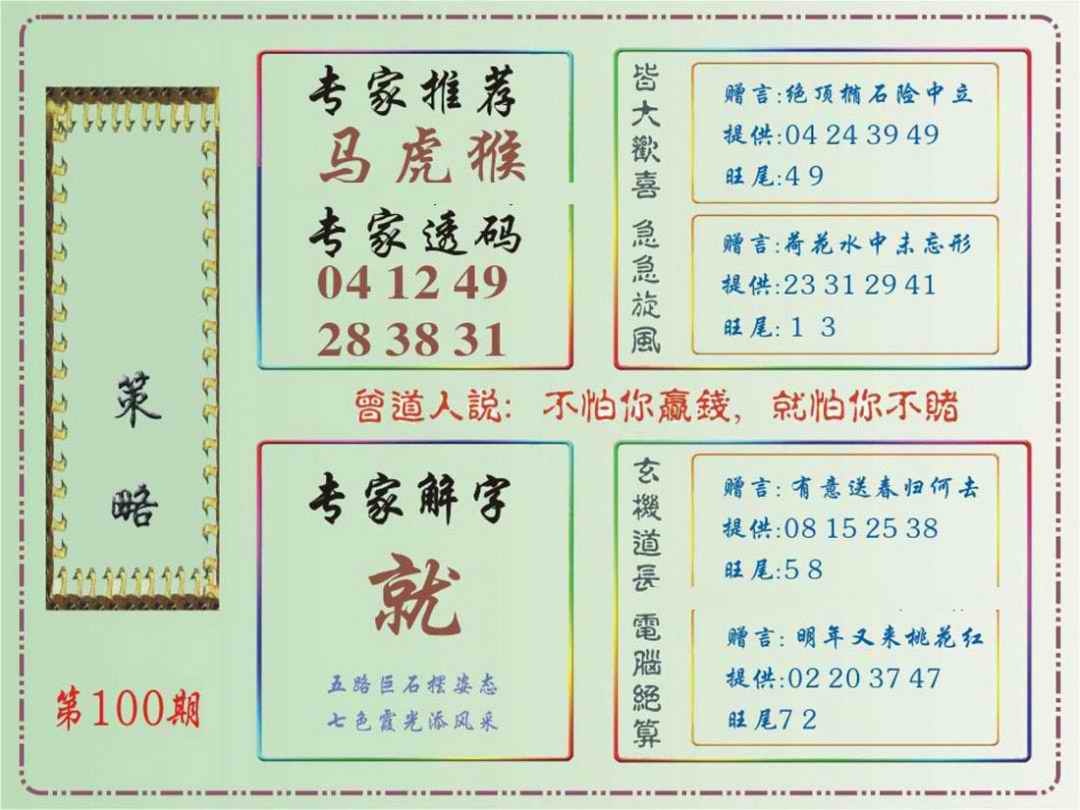 策略
第100期
专家推荐
马虎猴
专家透码
04 12 49
28 38 31
皆大歡喜
赠言:绝顶梢石险中立
提供:04 24 39 49
旺尾:4 9
急急旋風
赠言:荷花水中未忘形
提供:23 31 29 41
旺尾: 1 3
曾道人説: 不怕你贏錢, 就怕你不賭
专家解字
就
五路巨石摆姿态
七色霞光添风采
玄機道長
赠言: 有意送春归何去
提供:08 15 25 38
旺尾:5 8
電腦絕算
赠言: 明年又来桃花红
提供:02 20 37 47
旺尾7 2